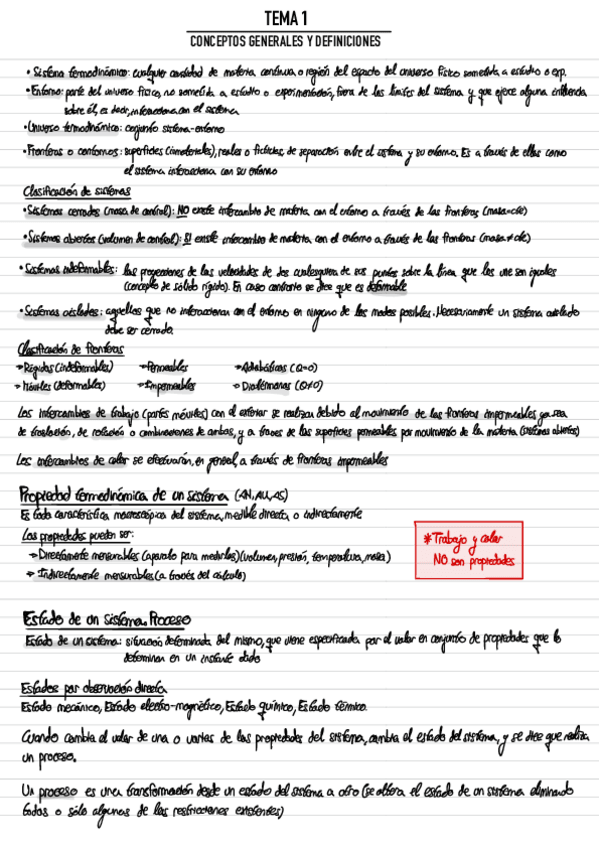 TEMA 1
CONCEPTOS GENERALES Y DEFINICIONES
• Sistema termodinámico: cualquier cantidad de materia continua, o región del espacio del universo físico sometida a estudio o exp.
• Entorno: parte del universo físico, no sometida a estudio o experimentación, fuera de los límites del sistema y que ejerce alguna influencia
sobre él, es decir, interacciona con el sistema
• Universo termodinámico: conjunto sistema-entorno
• Fronteras o contornos: superficies (inmateriales), reales o ficticias, de separación entre el sistema y su entorno. Es a través de ellas como
el sistema interacciona con su entorno
Clasificación de sistemas
• Sistemas cerrados (masa de control): NO existe intercambio de materia con el entorno a través de las fronteras (masa=cte)
• Sistemas abiertos (volumen de control): SI existe intercambio de materia con el entorno a través de las fronteras (masa≠cte)
• Sistemas indeformables: las proyecciones de las velocidades de dos cualesquiera de sus puntos sobre la línea que les une son iguales
(concepto de sólido rígido). En caso contrario se dice que es deformable
• Sistemas aislados: aquellos que no interaccionan con el entorno en ninguno de los modos posibles. Necesariamente un sistema aislado
debe ser cerrado.
Clasificación de fronteras
→ Rígidas (indeformables) → Permeables → Adiabáticas (Q=0)
→ Móviles (deformables) → Impermeables → Diatérmanas (Q≠0)
Los intercambios de trabajo (partes móviles) con el exterior se realiza debido al movimiento de las fronteras impermeables ya sea
de traslación, de rotación o combinaciones de ambas, y a traves de las superficies permeables por movimiento de la materia (sistemas abiertos)
Los intercambios de calor se efectuarán, en general, a través de fronteras impermeables
Propiedad termodinámica de un sistema (ΔN, ΔU, ΔS)
Es toda característica macroscópica del sistema, medible directa o indirectamente
Las propiedades pueden ser:
→ Directamente mensurables (aparato para medirlas) (volumen, presión, temperatura, masa)
→ Indirectamente mensurables (a través del cálculo)
* Trabajo y calor
NO son propiedades
Estado de un Sistema. Proceso
Estado de un sistema: situación determinada del mismo, que viene especificada por el valor en conjunto de propiedades que lo
determinan en un instante dado
Estados por observación directa
Estado mecánico, Estado electro-magnético, Estado químico, Estado térmico.
Cuando cambia el valor de una o varias de las propiedades del sistema, cambia el estado del sistema, y se dice que realiza
un proceso.
Un proceso es una transformación desde un estado del sistema a otro (se altera el estado de un sistema eliminando
todas o sólo algunas de las restricciones existentes)